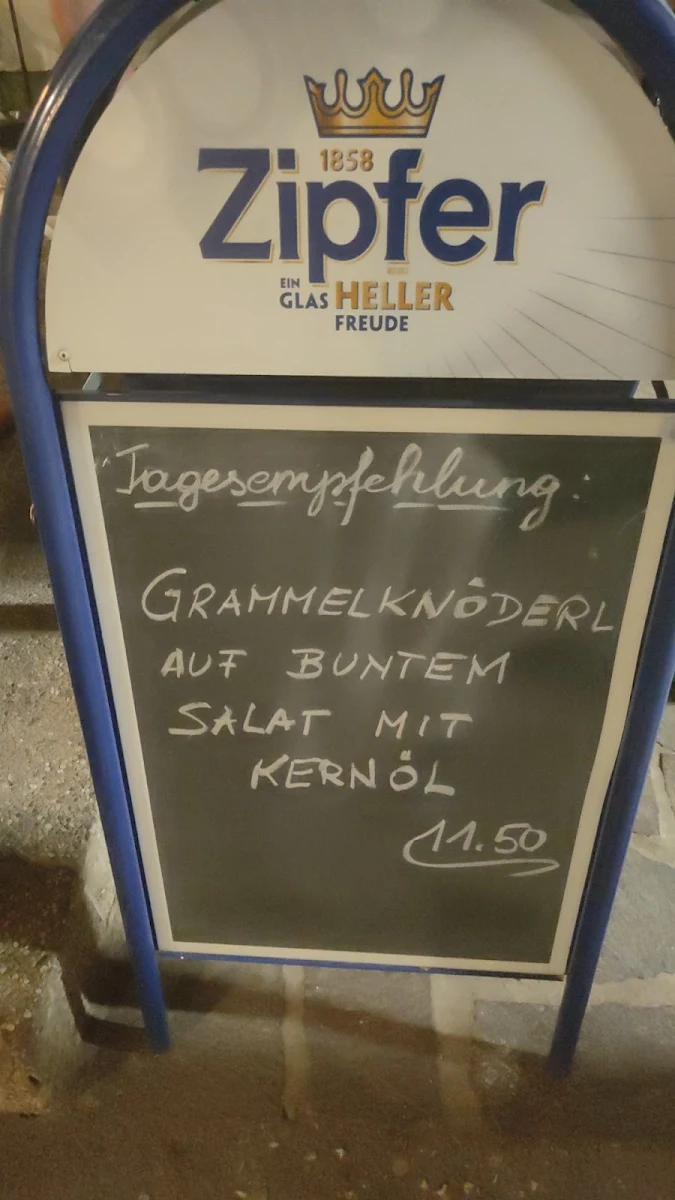 1858
Zipfer
EIN
GLAS HELLER
FREUDE
Tagesempfehlung:
GRAMMELKNÖDERL
AUF BUNTEM
SALAT MIT
KERNÖL
11.50